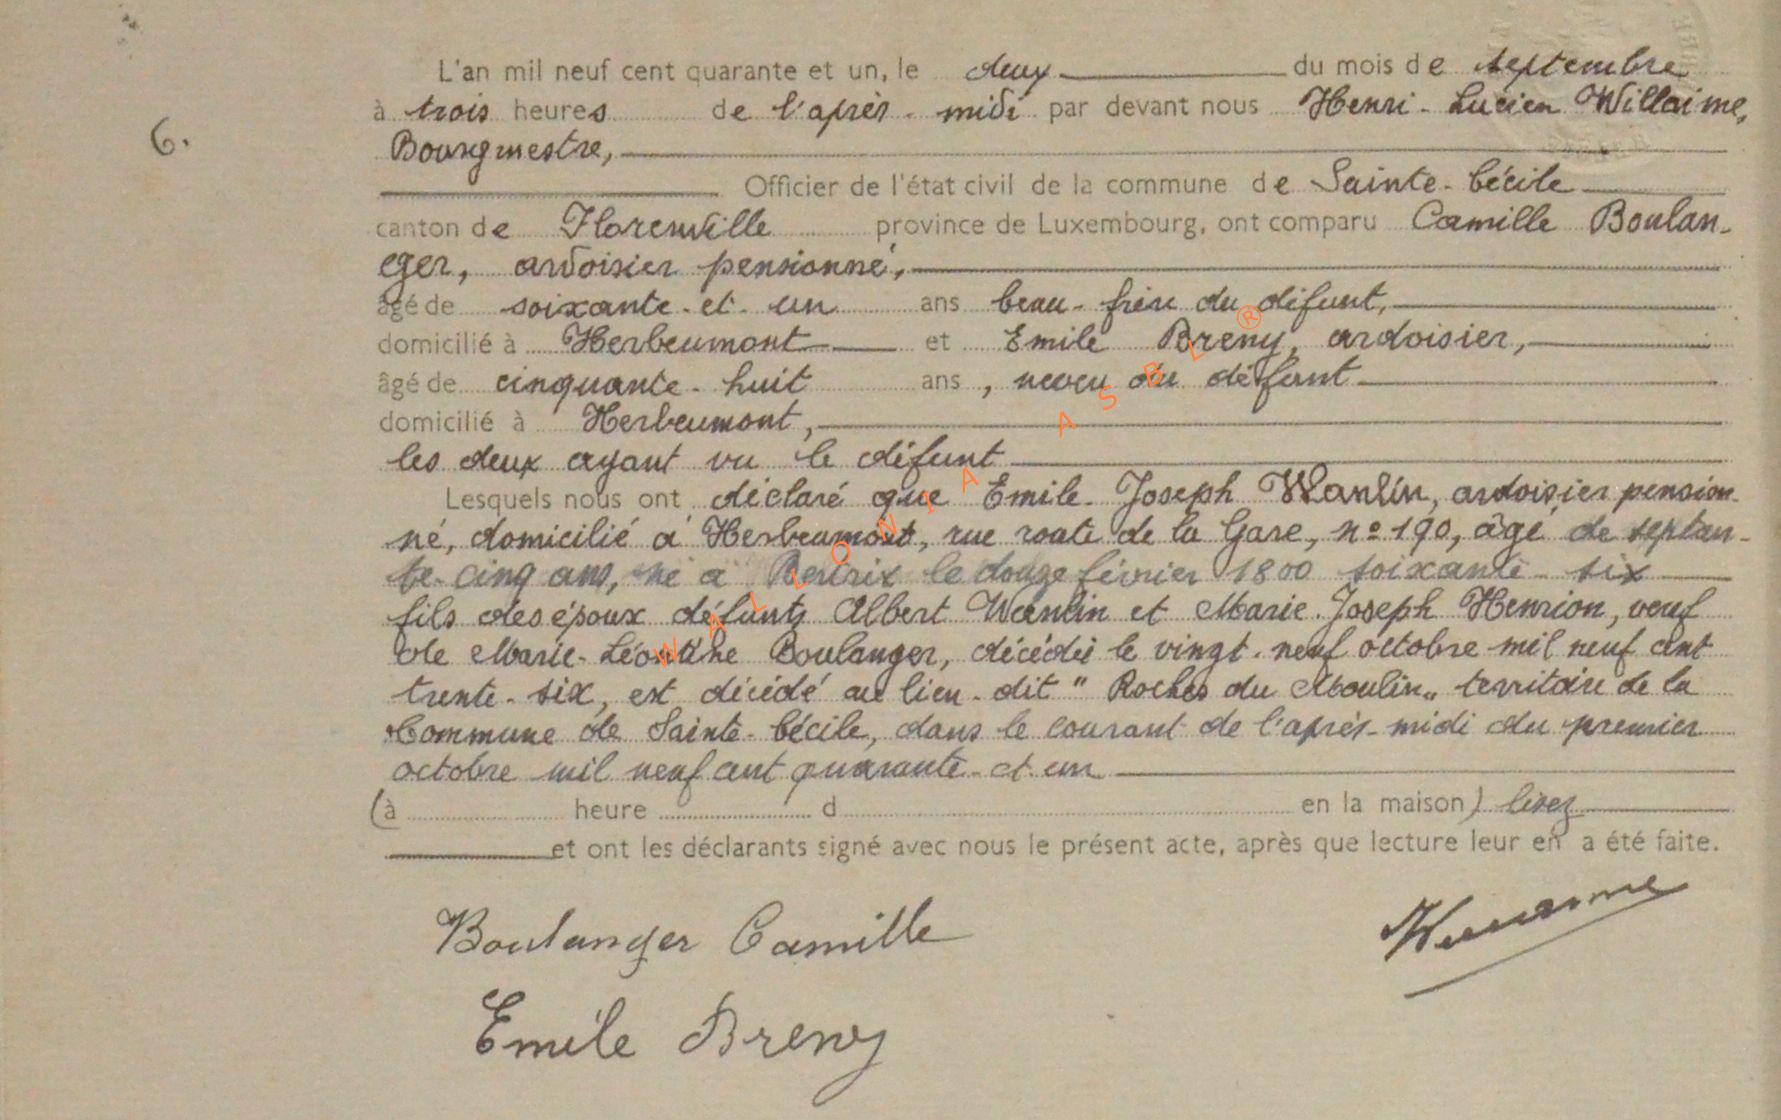 L'an mil neuf cent quarante et un, le deux du mois de septembre
à trois heures de l'après-midi par devant nous Henri-Lucien Willaime,
6.
Bourgmestre,
Officier de l'état civil de la commune de Sainte-Cécile
canton de Florenville province de Luxembourg, ont comparu Camille Boulan-
ger, ardoisier pensionné,
âgé de soixante-et-un ans beau-frère du défunt,
domicilié à Herbeumont et Emile Breny, ardoisier,
âgé de cinquante-huit ans, neveu du défunt
domicilié à Herbeumont,
les deux ayant vu le défunt
Lesquels nous ont déclaré que Emile-Joseph Wanlin, ardoisier pension-
né, domicilié à Herbeumont, rue route de la Gare, n° 190, âgé de septan-
te-cinq ans, né à Bertrix le douze février 1800 soixante-six
fils des époux défunts Albert Wanlin et Marie-Joseph Henrion, veuf
de Marie-Léontine Boulanger, décédée le vingt-neuf octobre mil neuf cent
trente-six, est décédé au lieu-dit "Roches du Moulin" territoire de la
Commune de Sainte-Cécile, dans le courant de l'après-midi du premier
octobre mil neuf cent quarante-et-un
(à heure d en la maison) lisez
et ont les déclarants signé avec nous le présent acte, après que lecture leur en a été faite.
Boulanger Camille
Willaime
Emile Breny
WALLONIA ASBL ®